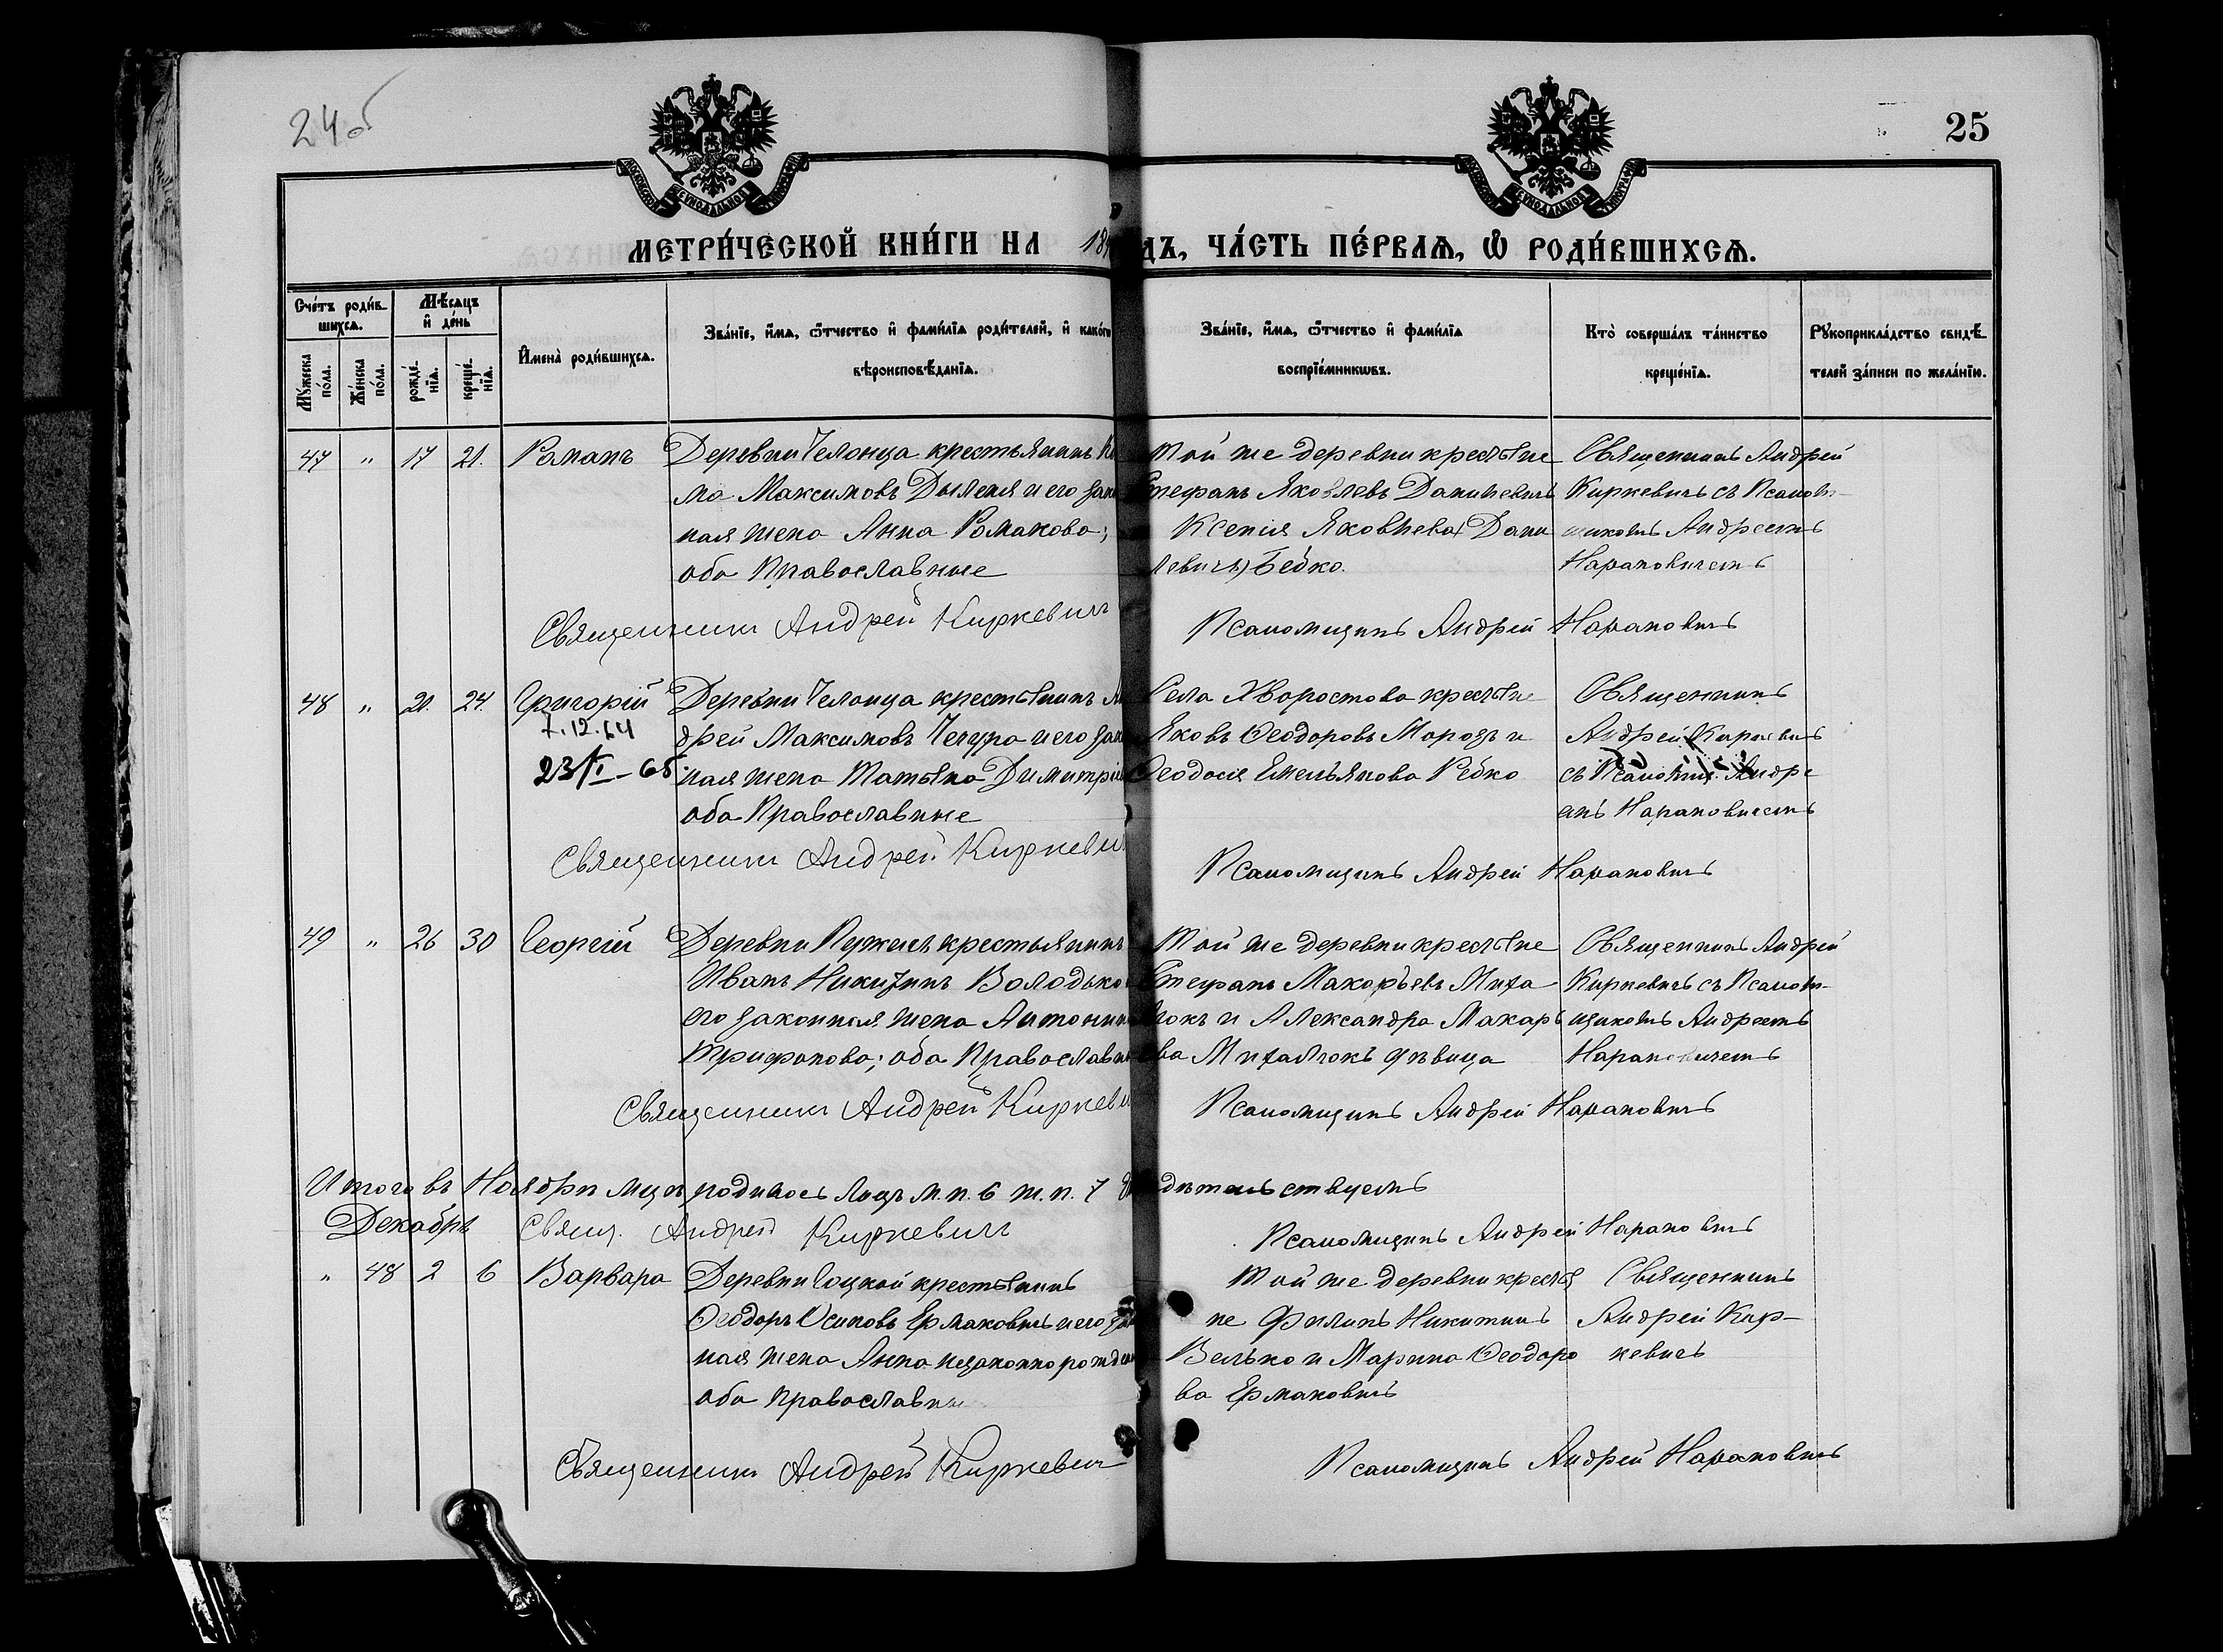 24об
25
МЕТРИ́ЧЕСКОЙ КНИ́ГИ НА 18
ДЪ, ЧА́СТЬ ПЕ́РВАѦ, Ѽ РОДИ́ВШИХСѦ.
Сче́тъ роди́в-
шихсѧ.
Мꙋ́жеска по́ла.
Же́нска по́ла.
Мѣ́сѧцъ
и҆ де́нь
рожде́-
нїѧ.
креще́-
нїѧ.
И҆мена̀ роди́вшихсѧ.
Зва́нїе, и҆́мѧ, ѻ҆́тчество и҆ фами́лїѧ роди́телей, и҆ како́гѡ
вѣроисповѣ́данїѧ.
Зва́нїе, и҆́мѧ, ѻ҆́тчество и҆ фами́лїѧ
воспрїе́мникѡвъ.
Кто̀ соверша́лъ та́инство
креще́нїѧ.
Рꙋкоприкла́дство свидѣ́-
телей за́писи по жела́нїю.
47 " 17 21. Романъ
Деревни Челонца крестьянинъ
ма Максимовъ Дыленя и его зако
ная жена Анна Романова;
оба Православные
Той же деревни крестьяне
Стефанъ Яковлевъ Данилевичъ
Ксенія Яковлева Дани
левичъ) Бедко.
Священникъ Андрей
Киркевичъ съ Псалом-
щикомъ Андреемъ
Нарановичемъ
Священникъ Андрей Киркевичъ
Псаломщикъ Андрей Нарановичъ
48 " 21. 24. Григорій
7.12.64
23/I-65
Деревни Челонца крестьянинъ Ан
дрей Максимовъ Чечура и его зако
ная жена Татьяна Димитріе
оба Православные
Села Хворостова крестьяне
Яковъ Ѳеодоровъ Морозъ и
Ѳеодосія Емельянова Редко
Священникъ
Андрей Киркевичъ
съ Псаломщ. Андре
емъ Нарановичемъ
Священникъ Андрей Киркевич
Псаломщикъ Андрей Нарановичъ
49 " 26 30 Георгій
Деревни Пужичъ крестьянинъ
Иванъ Никитинъ Володько
его законная жена Антонин
Трифонова; оба Православны
Той же деревни крестьяне
Стефанъ Макарьевъ Миха
люкъ и Александра Макарь
ева Михалюкъ дѣвица
Священникъ Андрей
Киркевичъ съ Псалом-
щикомъ Андреемъ
Нарановичемъ
Священникъ Андрей Киркеви
Псаломщикъ Андрей Нарановичъ
Итого въ Ноябрѣ мцѣ родилось лицъ м.п. 6 ж.п. 7
дѣтельствуемъ
Декабрь Свящ. Андрей Киркевичъ
Псаломщикъ Андрей Нарановичъ
" 48 2 6 Варвара
Деревни Гоцкой крестьянинъ
Ѳеодоръ Осиповъ Ермаковичъ и его зак
ная жена Анна незаконнорожден
оба Православны
Той же деревни крестья
не Филипъ Никитинъ
Велько и Марина Ѳеодоро
ва Ермаковичъ
Священникъ
Андрей Кир-
кевичъ
Священникъ Андрей Киркевич
Псаломщикъ Андрей Нарановичъ